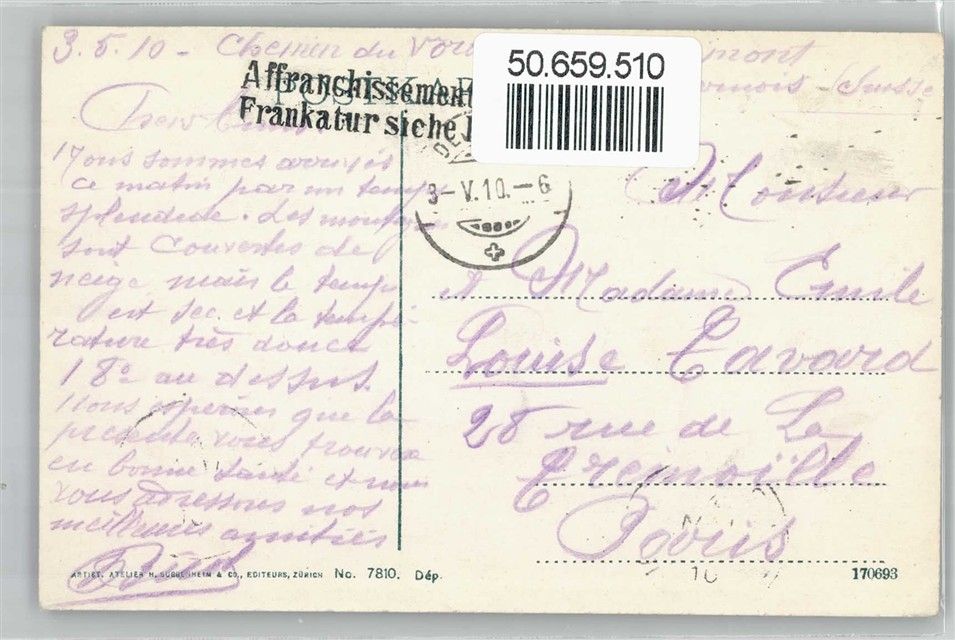 3.5.10 - Chemin du
mont
Suisse
50.659.510
Affranchissement
Frankatur siche
POSTKAR
3-V.10.-6
Nous sommes arrivés
ce matin par un temps
splendide. Les montagnes
sont couvertes de
neige mais le temps
est sec et la tempé-
rature très douce
18° au dessus.
Nous espérons que la
présente vous trouvera
en bonne santé et nous
vous adressons nos
meilleures amitiés
Monsieur
et Madame Emile
Louise Tavard
28 rue de La
Tremoïlle
Paris
ARTIST. ATELIER H. GUGGENHEIM & CO., EDITEURS, ZÜRICH No. 7810. Dép.
170693